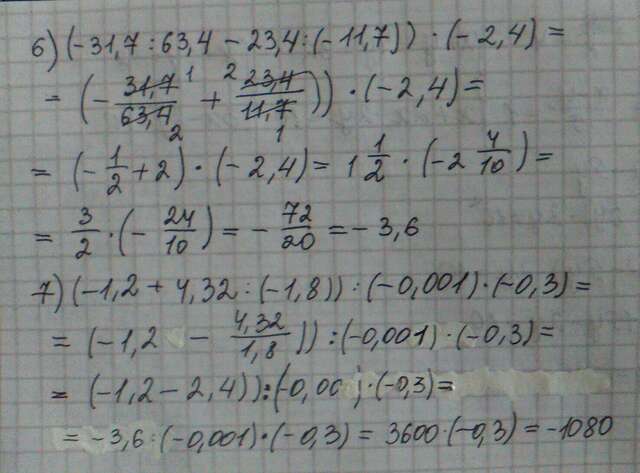 6) (-31,7 : 63,4 - 23,4 : (-11,7)) · (-2,4) =
= (- 31,7/63,4 1/2 + 2/1 23,4/11,7)) · (-2,4) =
= (- 1/2 + 2) · (-2,4) = 1 1/2 · (-2 4/10) =
= 3/2 · (- 24/10) = - 72/20 = -3,6
7) (-1,2 + 4,32 : (-1,8)) : (-0,001) · (-0,3) =
= (-1,2 - 4,32/1,8)) : (-0,001) · (-0,3) =
= (-1,2 - 2,4)) : (-0,00 ) · (-0,3) =
= -3,6 : (-0,001) · (-0,3) = 3600 · (-0,3) = -1080